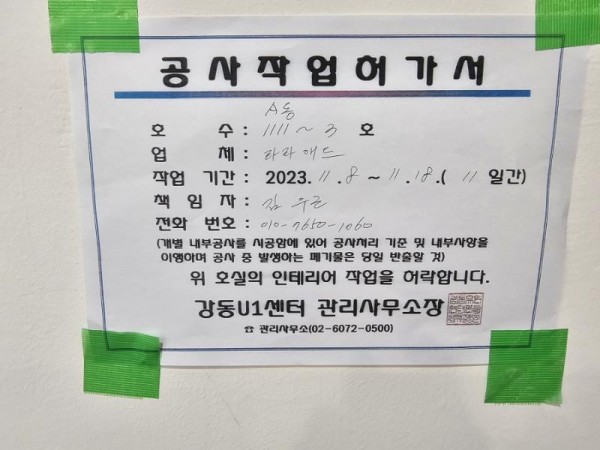 공사작업허가서
A동
호 수 : 1111 ~ 3 호
업 체 : 타라애드
작업 기간 : 2023. 11. 8 ~ 11. 18. ( 11 일간)
책 임 자 :
전화 번호 : 010-7650-1060
(개별 내부공사를 시공함에 있어 공사처리 기준 및 내부사항을
이행하며 공사 중 발생하는 폐기물은 당일 반출할 것)
위 호실의 인테리어 작업을 허락합니다.
강동U1센터 관리사무소장
☎ 관리사무소(02-6072-0500)